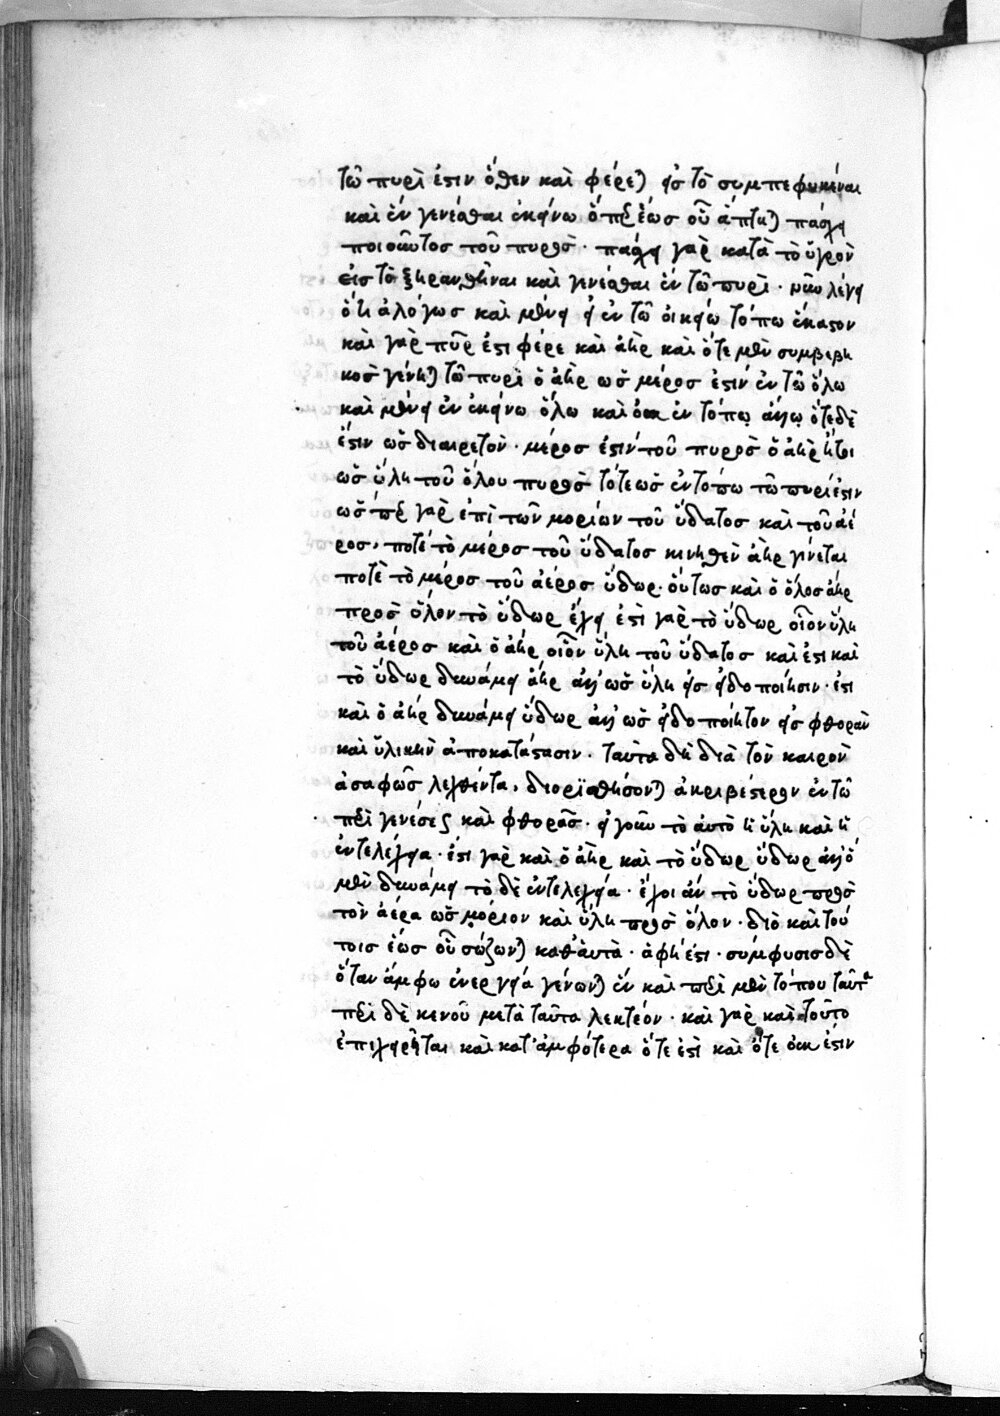 τῶ πυρὶ ἐστιν ὅθεν καὶ φέρεται εἰς τὸ συμπεφυκέναι
καὶ ἓν γενέσθαι ἐκείνω ὅπερ ἕως οὗ ἅπτεται πάσχει
ποιοῦντος τοῦ πυρὸς · πάσχει γὰρ κατὰ τὸ ὑγρὸν
εἰς τὸ ξηρανθῆναι καὶ γενέσθαι ἐν τῶ πυρὶ · νῦν λέγει
ὅτι ἀλόγως καὶ μένει ἐν τῶ οἰκείω τόπω ἕκαστον
καὶ γὰρ πῦρ ἐστι φέρε καὶ ἀὴρ καὶ ὅτε μὲν συμβεβη
κὸς γένηται τῶ πυρὶ ὁ ἀὴρ ὡς μέρος ἐστὶν ἐν τῶ ὅλω
καὶ μένει ἐν ἐκείνω ὅλω καὶ οὐκ ἐν τόπῳ ὅτε δὲ
ἔστιν ὡς διαιρετὸν · μέρος ἐστὶν τοῦ πυρὸς ὁ ἀὴρ ἤτοι
ὡς ὕλη τοῦ ὅλου πυρὸς τότε ὡς ἐν τόπω τῶ πυρί ἐστιν
ὡς περ γὰρ ἐπὶ τῶν μορίων τοῦ ὕδατος καὶ τοῦ ἀέ
ρος, ποτὲ τὸ μέρος τοῦ ὕδατος κινηθὲν ἀὴρ γίνεται
ποτὲ τὸ μέρος τοῦ ἀέρος ὕδωρ · οὕτως καὶ ὁ ὅλος ἀὴρ
πρὸς ὅλον τὸ ὕδωρ ἔχει ἐστὶ γὰρ τὸ ὕδωρ οἷον ὕλη
τοῦ ἀέρος καὶ ὁ ἀὴρ οἷον ὕλη τοῦ ὕδατος καὶ ἔστι καὶ
τὸ ὕδωρ δυνάμει ἀὴρ ἀλλ' ὡς ὕλη εἰς εἰδοποίησιν · ἔστι
καὶ ὁ ἀὴρ δυνάμει ὕδωρ ἀλλ' ὡς εἰδοποίητον εἰς φθορὰν
καὶ ὑλικὴν ἀποκατάστασιν · ταῦτα δὴ διὰ τὸν καιρὸν
ἀσαφῶς λεχθέντα, διορισθήσονται ἀκριβέστερον ἐν τῶ
περὶ γενέσεως καὶ φθορᾶς · εἰ γοῦν τὸ αὐτὸ ἡ ὕλη καὶ ἡ
ἐντελέχεια · ἔστι γὰρ καὶ ὁ ἀὴρ καὶ τὸ ὕδωρ ὕδωρ ἀλλ' ὁ
μὲν δυνάμει τὸ δὲ ἐντελεχεία · ἔχοι ἂν τὸ ὕδωρ πρὸς
τὸν ἀέρα ὡς μόριον καὶ ὕλη πρὸς ὅλον · διὸ καὶ τού
τοις ἕως οὗ σώζονται καθ' αὑτὰ · ἁφή ἐστι · σύμφυσις δὲ
ὅταν ἄμφω ἐνεργεία γένωνται ἓν καὶ περὶ μὲν τόπου ταῦτα
περὶ δὲ κενοῦ μετὰ ταῦτα λεκτέον · καὶ γὰρ καὶ τοῦτο
ἐπιχειρεῖται καὶ κατ' ἀμφότερα ὅτε ἐστὶ καὶ ὅτε οὐκ ἔστιν